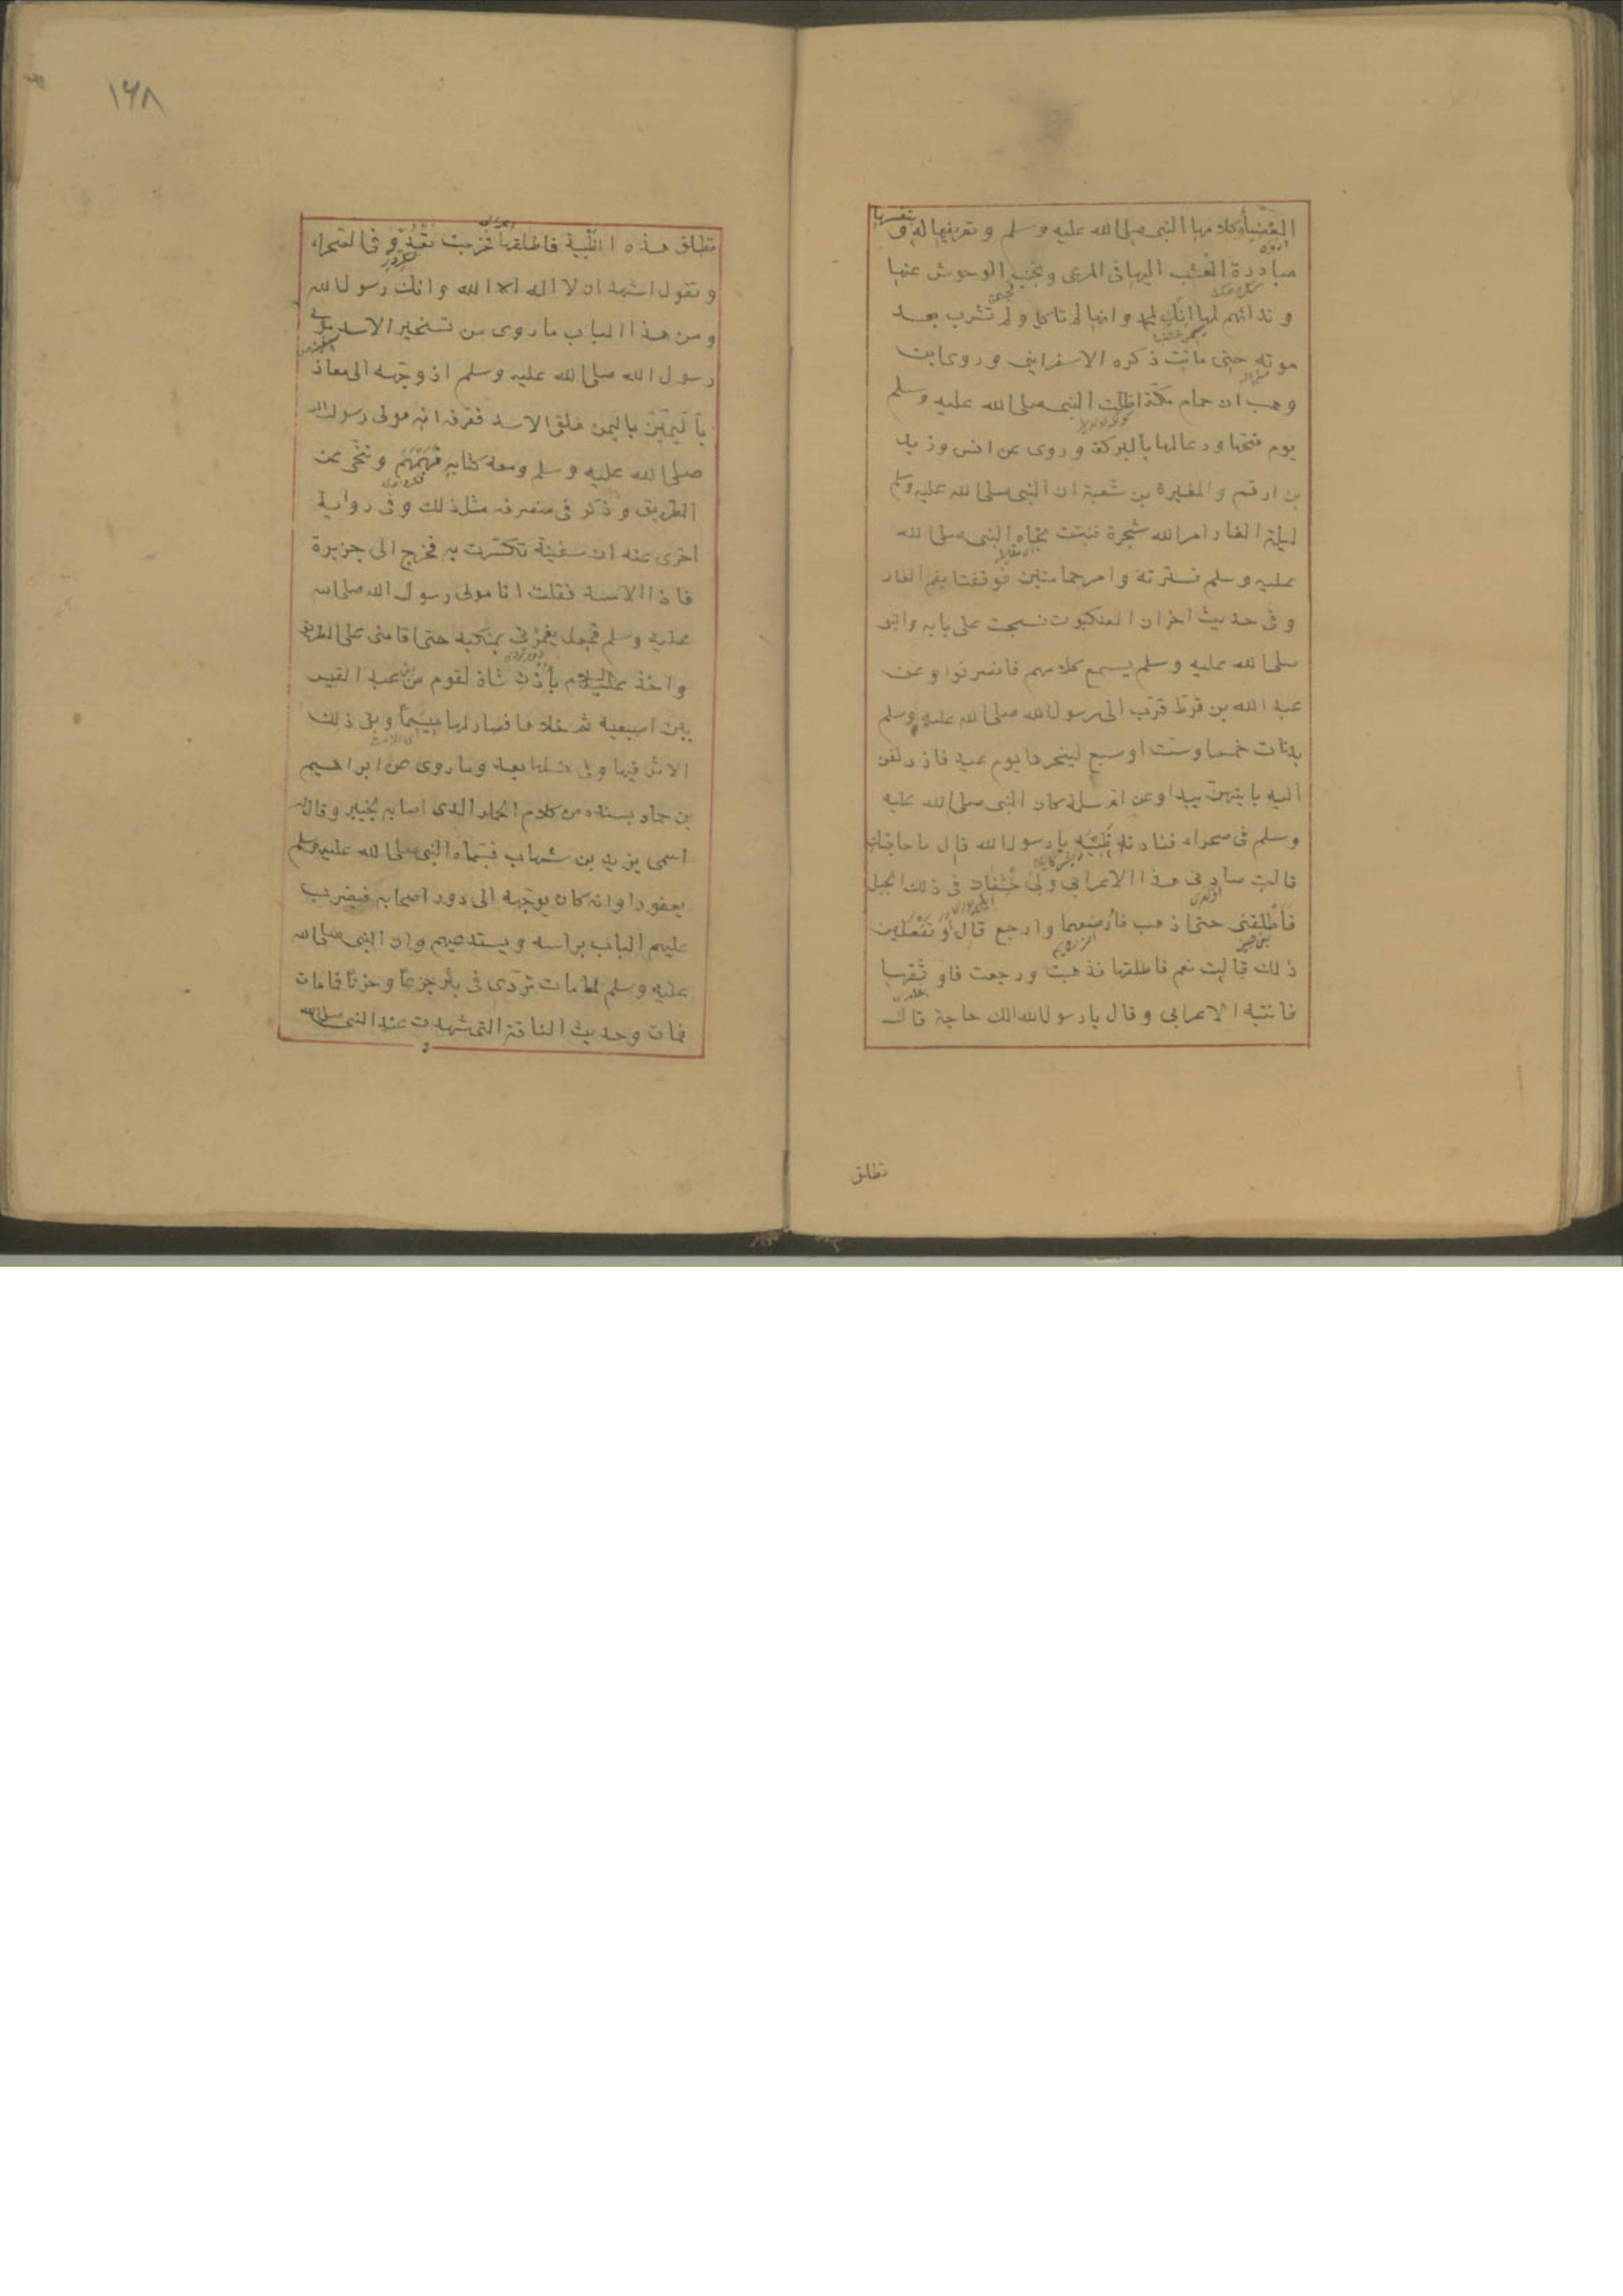 العضباء وكلامها النبى صلى الله عليه وسلم وتعريفها له و بنفسها
مبادرة العشب اليها فى المرعى وتجنب الوحوش عنها
وندائهم لها انك لمحمد وانها لم تاكل ولم تشرب بعد
موته حتى ماتت ذكره الاسفراينى وروى ابن
وهب ان حمام مكة اظلت النبى صلى الله عليه وسلم
يوم فتحها ودعا لها بالبركة وروى عن انس وزيد
بن ارقم والمغيرة بن شعبة ان النبى صلى الله عليه وسلم
ليلة الغار امر الله شجرة فنبتت تجاه النبى صلى الله
عليه وسلم فسترته وامر حمامتين فوقفتا بفم الغار
وفى حديث اخر ان العنكبوت نسجت على بابه والنبى
صلى الله عليه وسلم يسمع كلامهم فانصرفوا وعن
عبد الله بن قرط قرب الى رسول الله صلى الله عليه وسلم
بدنات خمس او ست او سبع لينحرها يوم عيد فازدلفن
اليه بايتهن يبدا وعن ام سلمة كان النبى صلى الله عليه
وسلم فى صحراء فنادته ظبية يا رسول الله قال ما حاجتك
قالت صادنى هذا الاعرابى ولى خشفان فى ذلك الجبل
فاطلقنى حتى اذهب فارضعهما وارجع قال او تفعلين
ذلك قالت نعم فاطلقها فذهبت ورجعت فاوثقها
فانتبه الاعرابى وقال يا رسول الله الك حاجة قال
تطلق
١٦٨
تطلق هذه الظبية فاطلقها فخرجت تعدو فى الصحراء
وتقول اشهد ان لا اله الا الله وانك رسول الله
ومن هذا الباب ما روى من تسخير الاسد
رسول الله صلى الله عليه وسلم اذ وجهه الى معاذ
باليمن فلقى الاسد فعرفه انه مولى رسول الله
صلى الله عليه وسلم ومعه كتابه فهمهم وتنحى عن
الطريق وذكر فى منصرفه مثل ذلك وفى رواية
اخرى عنه ان سفينة تكسرت به فخرج الى جزيرة
فاذا الاسد فقلت انا مولى رسول الله صلى الله
عليه وسلم فجعل يغمزنى بمنكبه حتى اقامنى على الطريق
واخذ عليه السلام باذن شاة لقوم من عبد القيس
بين اصبعيه ثم خلاها فصار لها ميسما وبقى ذلك
الاثر فيها وفى نسلها بعد وما روى عن ابراهيم
بن حماد بسنده من كلام الحمار الذى اصابه بخيبر وقال له
اسمى يزيد بن شهاب فسماه النبى صلى الله عليه وسلم
يعفورا وانه كان يوجهه الى دور اصحابه فيضرب
عليهم الباب براسه ويستدعيهم وان النبى صلى الله
عليه وسلم لما مات تردى فى بئر جزعا وحزنا
فمات وحديث الناقة التى شهدت عند النبى صلى الله